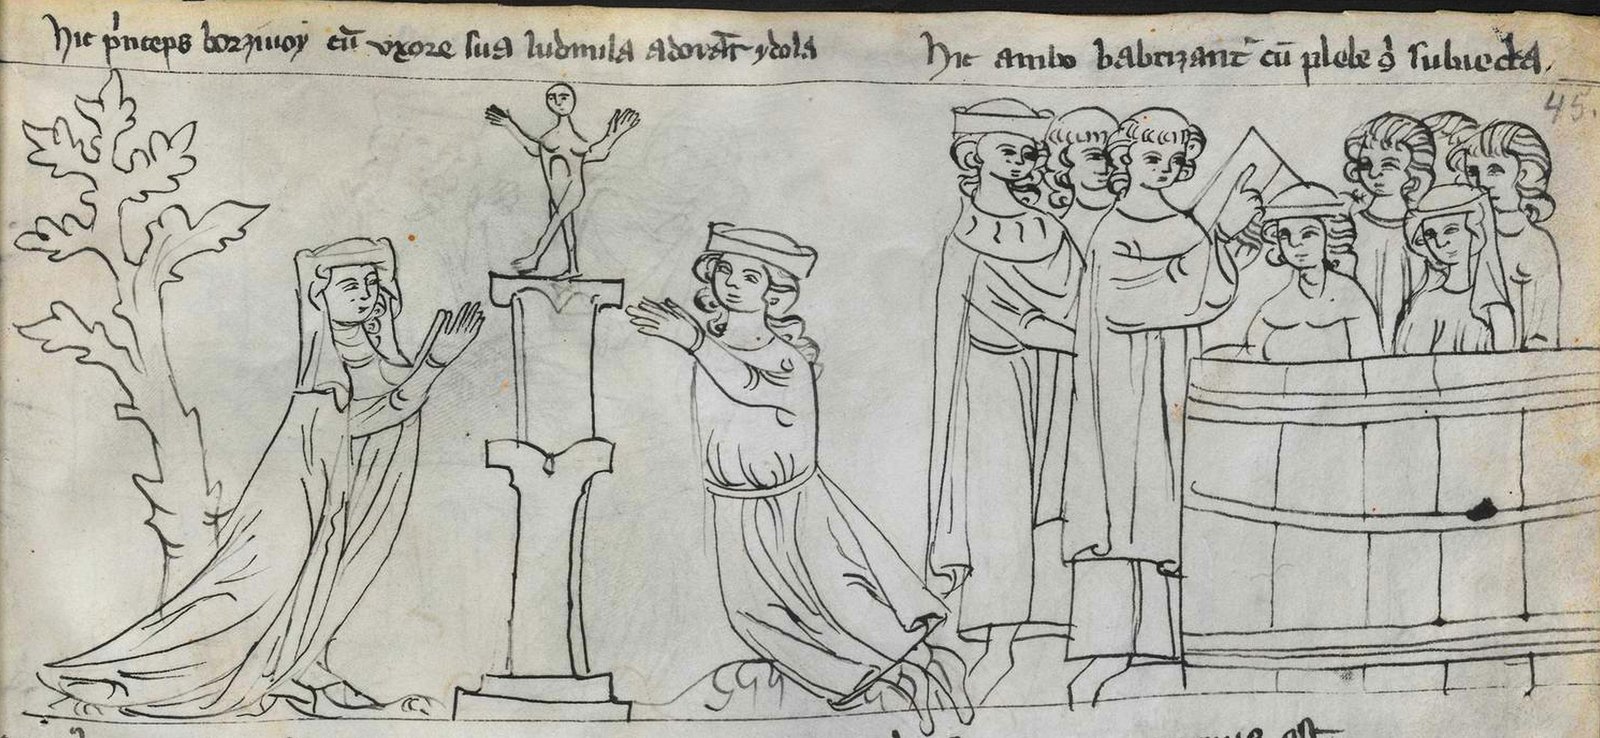 hic p̄nceps borziuoy cū vxore sua ludmila adorāt ydola
hic ambo babtizant̄ cū plebe s̄ subiecta.
45.